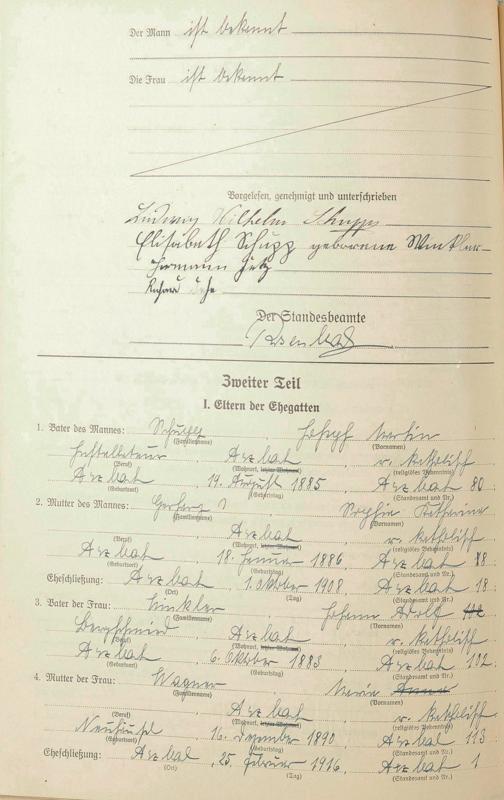 Der Mann ist bekannt
Die Frau ist bekannt
Vorgelesen, genehmigt und unterschrieben
Ludwig Wilhelm Schupp
Elisabeth Schupp geborene Winkler
Hermann
Der Standesbeamte
Zweiter Teil
I. Eltern der Ehegatten
1. Vater des Mannes: Schupp Joseph Martin
(Familienname) (Vornamen)
Installateur, Arzbach, r. katholisch
(Beruf) (Wohnort, letzter Wohnort) (religiöses Bekenntnis)
Arzbach 19. August 1885, Arzbach 80
(Geburtsort) (Geburtstag) (Standesamt und Nr.)
2. Mutter des Mannes: Sophie Katharina
(Familienname) (Vornamen)
Arzbach, r. katholisch
(Beruf) (Wohnort, letzter Wohnort) (religiöses Bekenntnis)
Arzbach 18. Januar 1886 Arzbach
(Geburtsort) (Geburtstag) (Standesamt und Nr.)
Eheschließung: Arzbach 1. Oktober 1908, Arzbach 18
(Ort) (Tag) (Standesamt und Nr.)
3. Vater der Frau: Winkler Johann Adolf
(Familienname) (Vornamen)
Bergschmied, Arzbach, r. katholisch
(Beruf) (Wohnort, letzter Wohnort) (religiöses Bekenntnis)
Arzbach 6. Oktober 1883 Arzbach 102
(Geburtsort) (Geburtstag) (Standesamt und Nr.)
4. Mutter der Frau: Wagner Maria Anna
(Familienname) (Vornamen)
Arzbach, r. katholisch
(Beruf) (Wohnort, letzter Wohnort) (religiöses Bekenntnis)
Neuhäusel 16. Dezember 1890, Arzbach 113
(Geburtsort) (Geburtstag) (Standesamt und Nr.)
Eheschließung: Arzbach, 25. Februar 1916, Arzbach 1
(Ort) (Tag) (Standesamt und Nr.)